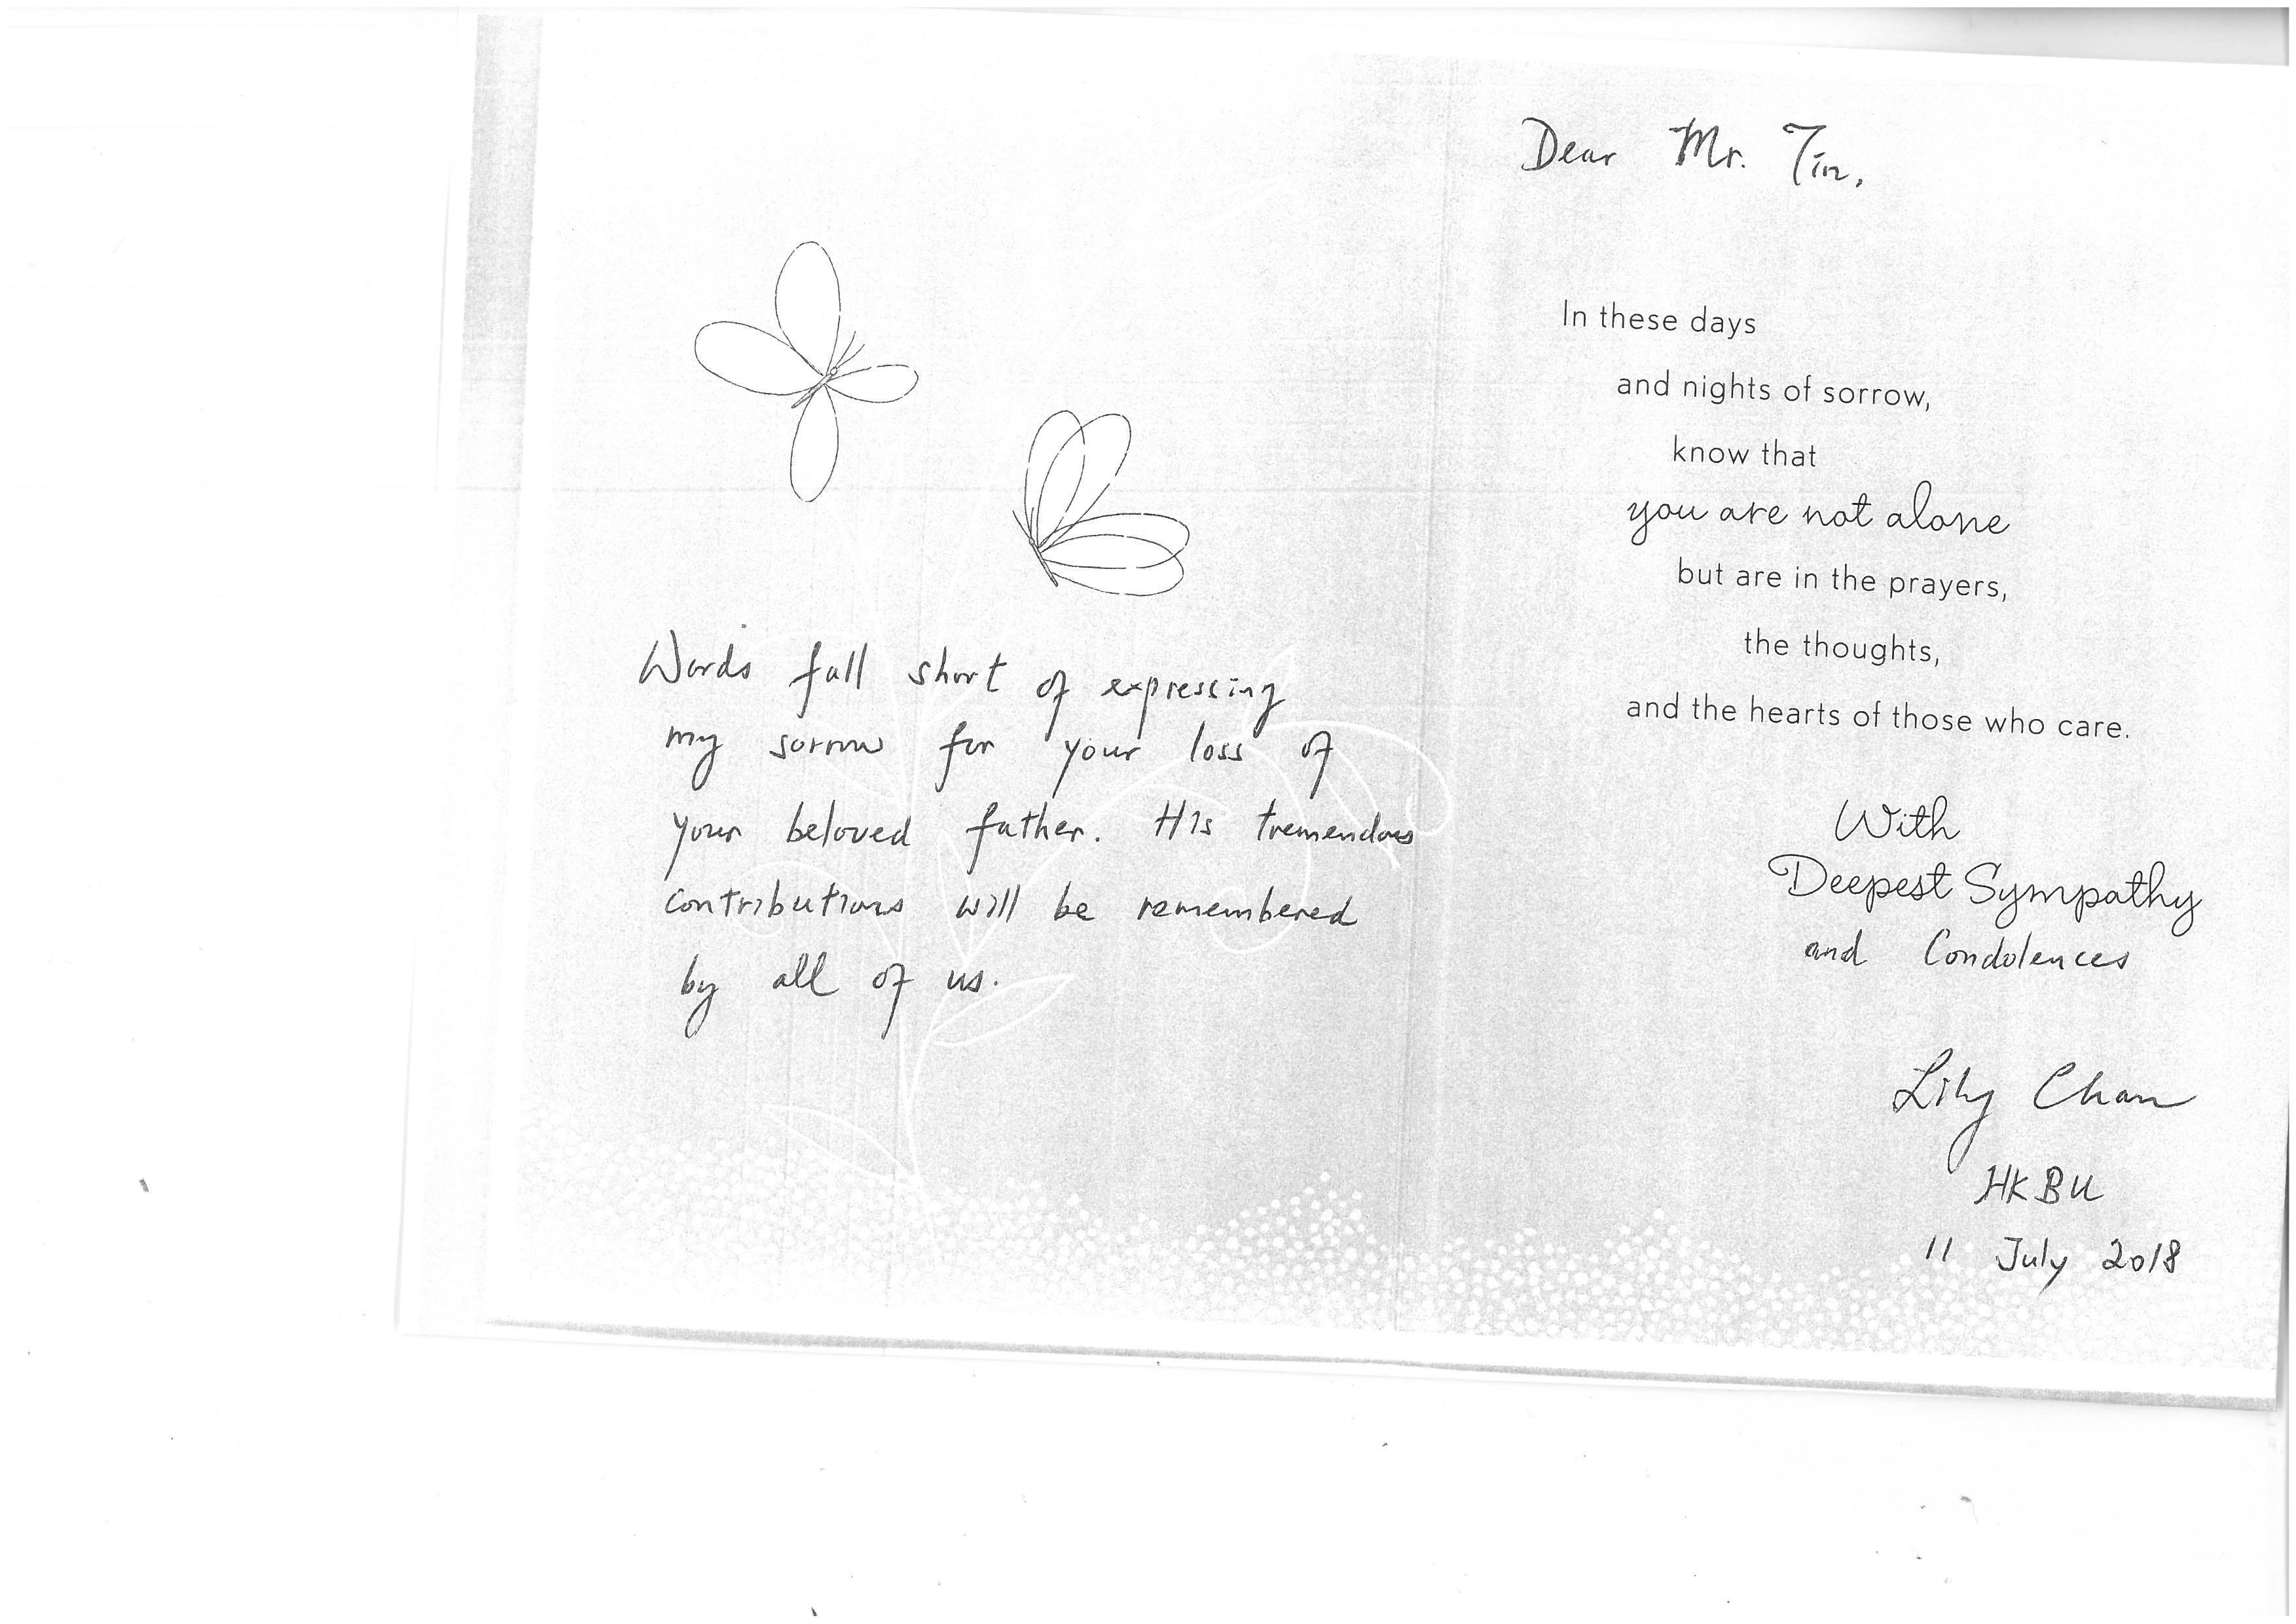 Words fall short of expressing
my sorrow for your loss of
your beloved father. His tremendous
contributions will be remembered
by all of us.
Dear Mr. Tin,
In these days
and nights of sorrow,
know that
you are not alone
but are in the prayers,
the thoughts,
and the hearts of those who care.
With
Deepest Sympathy
and Condolences
Lily Chan
HKBU
11 July 2018